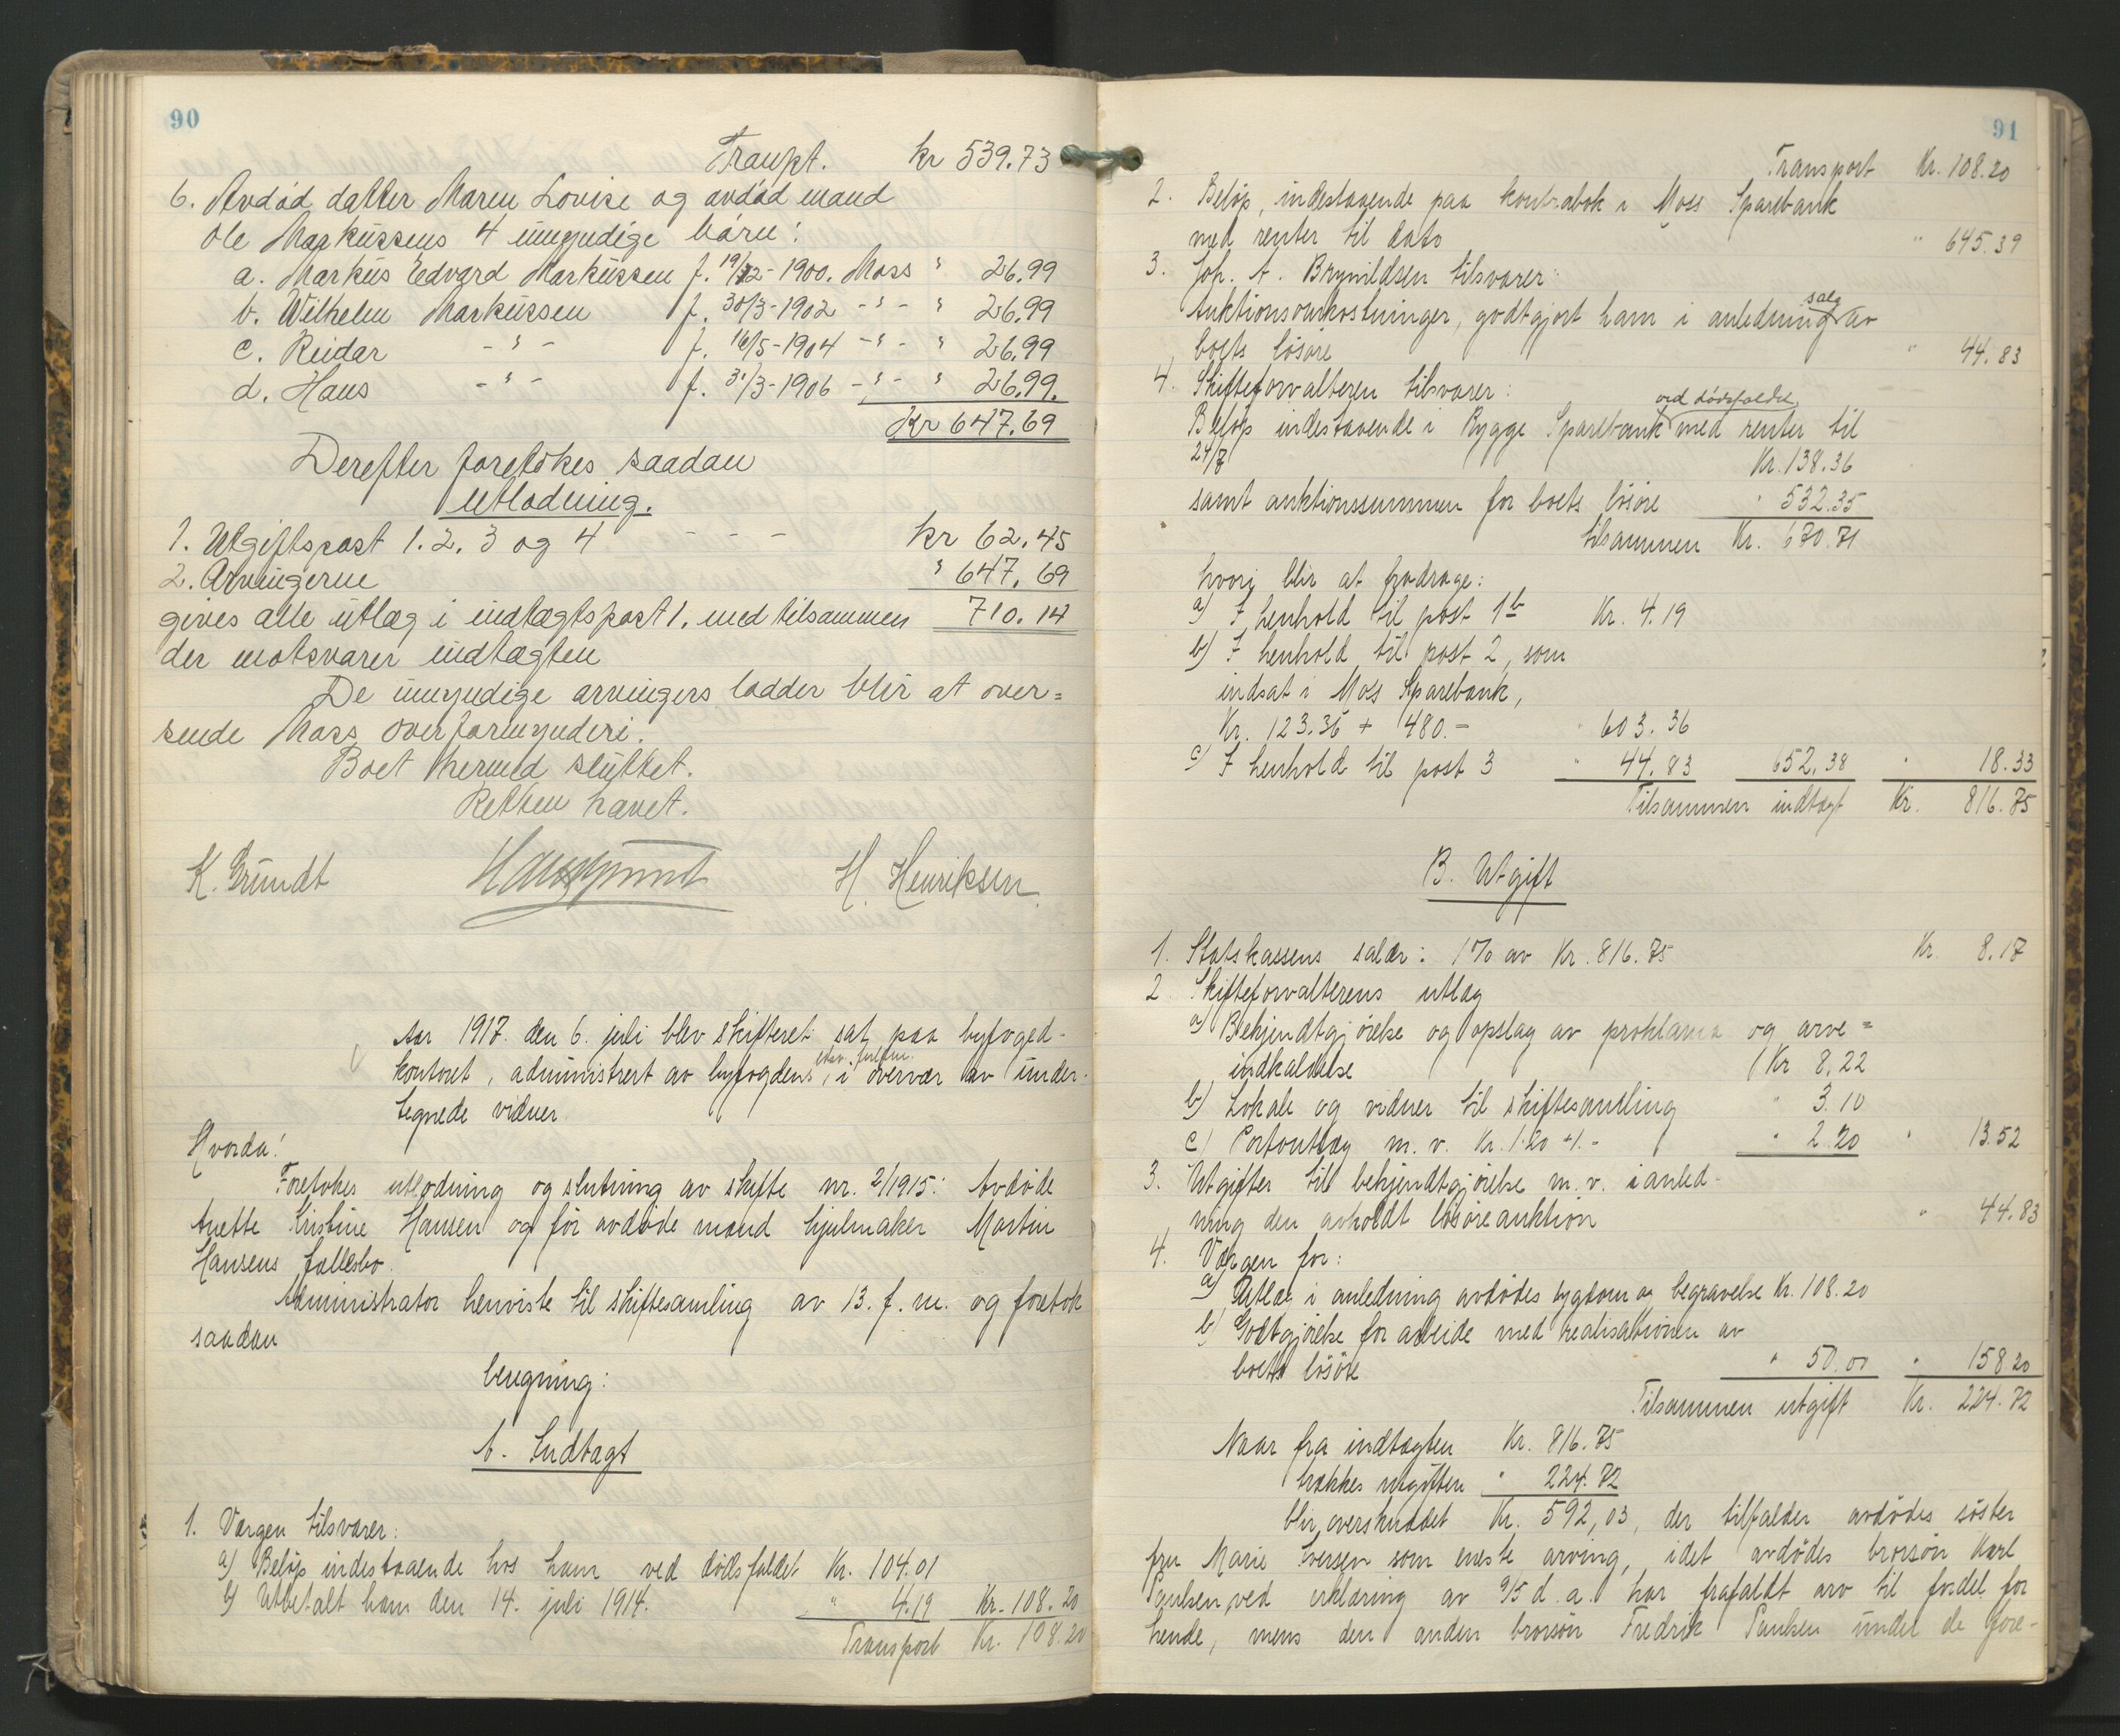 90
Transpt. kr 539.73
6. Avdød datter Maren Lovise og avdød mand
Ole Markussens 4 umyndige barn:
a. Markus Edvard Markussen f. 19/12-1900. Moss " 26.99
b. Wilhelm Markussen f. 30/3-1902 -"- " 26.99
c. Reidar -"- f. 16/5-1904 -"- " 26.99
d. Hans -"- f. 31/3-1906 -"- " 26.99.
Kr 647.69
Derefter foretokes saadan
Utlodning.
1. Utgiftspost 1. 2. 3 og 4 - - - kr 62.45
2. Arvingerne " 647.69
gives alle utlæg i indtægtspost 1. med tilsammen 710.14
der motsvarer indtægten
De umyndige arvingers lodder blir at over=
sende Moss overformynderi.
Boet hermed sluttet.
Retten hævet.
K. Grundt H. Henriksen.
Aar 1917 den 6. juli blev skifteret sat paa byfoged-
kontoret, administrert av byfogdens, i overvær av under-
tegnede vidner.
Hvorda!
Foretokes utlodning og slutning av skifte nr. 2/1915: Avdøde
Anette Kristine Hansen og før avdøde mand hjulmaker Martin
Hansens fællesbo.
Administrator henviste til skiftesamling av 13. f. m. og foretok
saadan
beregning:
A. Indtægt
1.Værgen tilsvarer:
a) Beløp indestaaende hos ham ved dødsfaldet Kr. 104.01
b) Utbetalt ham den 14. juli 1914. " 4.19 Kr. 108.20
Transport Kr. 108.20
91
Transport Kr. 108.20
2. Beløp, indestaaende paa kontrabok i Moss Sparebank
med renter til dato " 645.39
3. Joh. A. Brynildsen tilsvarer:
salg
Auktionsomkostninger, godtgjort ham i anledning av
boets løsøre " 44.83
4. Skifteforvalteren tilsvarer:
ved dødsfaldet
Beløp indestaaende i Rygge Sparebank med renter til
24/7 Kr. 138.36
samt auktionssummen for boets løsøre " 532.35
tilsammen Kr. 670.71
hvori blir at fradrage:
a) I henhold til post 1b Kr. 4.19
b) I henhold til post 2, som
indsat i Moss Sparebank,
Kr. 123.36 + 480.- " 603.36
c) I henhold til post 3 " 44.83 652.38 " 18.33
Tilsammen indtægt Kr. 816.75
B. Utgift
1. Statskassens salær: 1% av Kr. 816.75 Kr. 8.17
2 Skifteforvalterens utlæg
a) Bekjendtgjørelse og opslag av proklama og arve=
indkaldelse Kr 8.22
b) Lokale og vidner til skiftesamling " 3.10
c) Portoutlæg m. v. Kr. 1.20 + 1.- " 2.20 " 13.52
3. Utgifter til bekjendtgjørelse m. v. i anled-
ning den avholdt løsøreauktion " 44.83
4. Værgen for:
a) Utlæg i anledning avdødes sygdom og begravelse Kr. 108.20
b) Godtgjørelse for arbeide med realisationen av
boets løsøre " 50.00 " 158.20
Tilsammen utgift Kr. 224.72
Naar fra indtægten Kr. 816.75
trækkes utgiften " 224.72
blir overskuddet Kr. 592,03, der tilfalder avdødes søster
fru Marie Iversen som eneste arving, idet avdødes brorsøn Karl
Paulsen ved erklæring av 9/5 d. a. har frafaldt arv til fordel for
hende, mens den anden brorsøn Fredrik Paulsen under de fore-